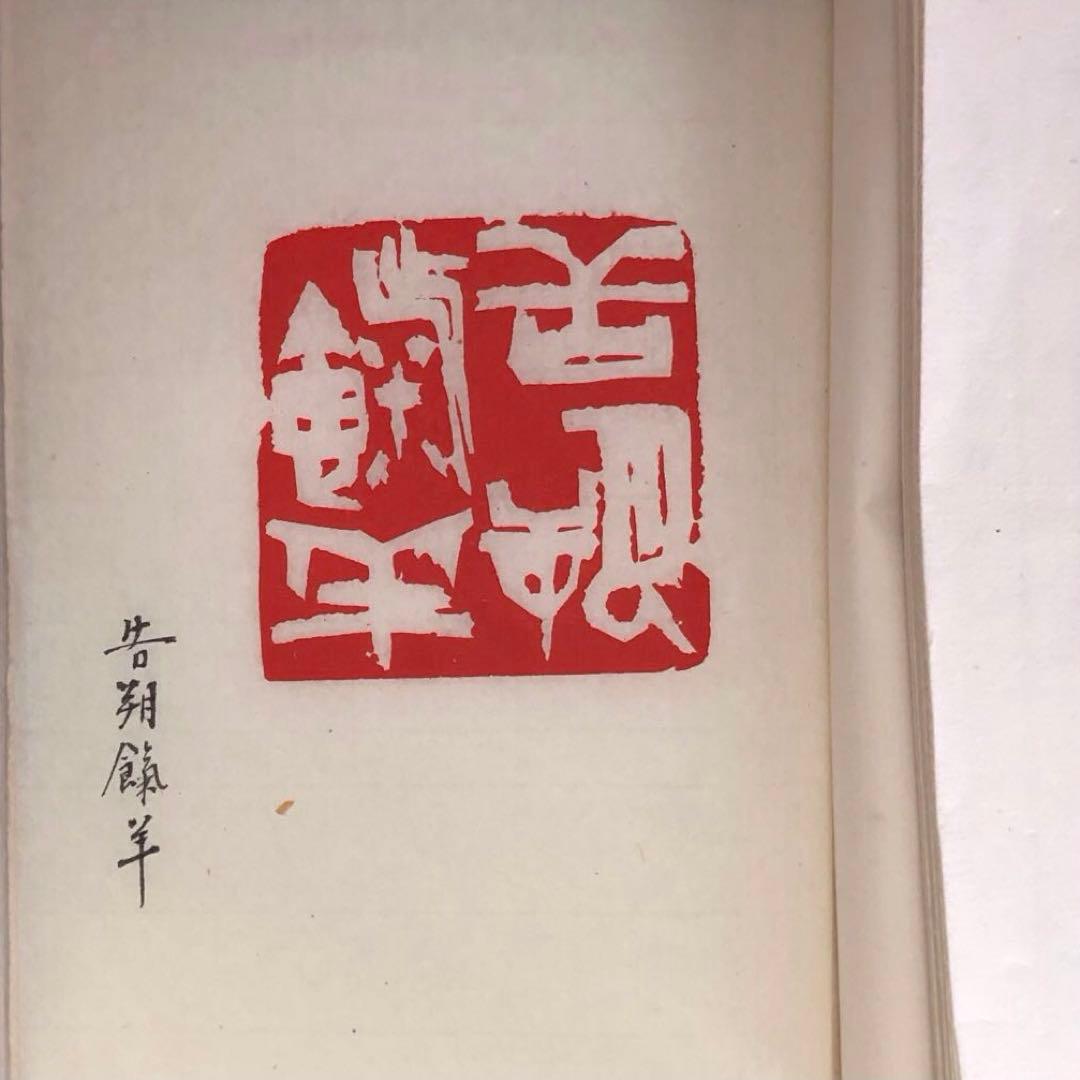 告朔餼羊
告朔餼羊